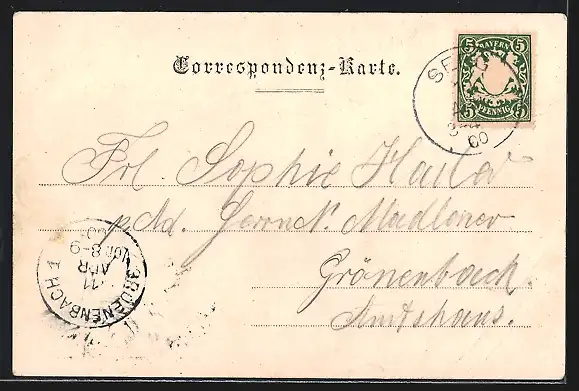 Correspondenz-Karte.
5 BAYERN 5
5 PFENNIG 5
SE
00
Frl. Sophie Hailer
p. Ad. Herrn N. Madlener
Grönenbach.
Amtshaus.
GROENENBACH 1
11
APR
VOR. 8-9
00